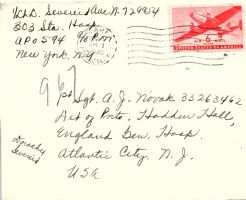 Ave N-729854
803 Sta. Hosp.
APO 594 % P.M.
New York, N.Y.
6¢
UNITED STATES OF AMERICA
967
Sgt. A. J. Novak 33263462
Det of Pnts. Haddon Hall,
England Gen. Hosp.
Atlantic City, N. J.
USA
Dorothy
Severid